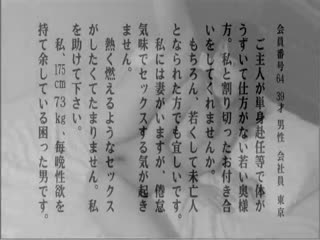 会員番号64 39才 男性 会社員 東京
ご主人が単身赴任等で体が
うずいて仕方がない若い奥様
方。私と割り切ったお付き合
いをしてくれませんか。
もちろん、若くして未亡人
となられた方でも宜しいです。
私には妻がいますが、倦怠
気味でセックスする気が起き
ません。
熱く燃えるようなセックス
がしたくてたまりません。私
を助けて下さい。
私、175cm73kg、毎晩性欲を
持て余している困った男です。